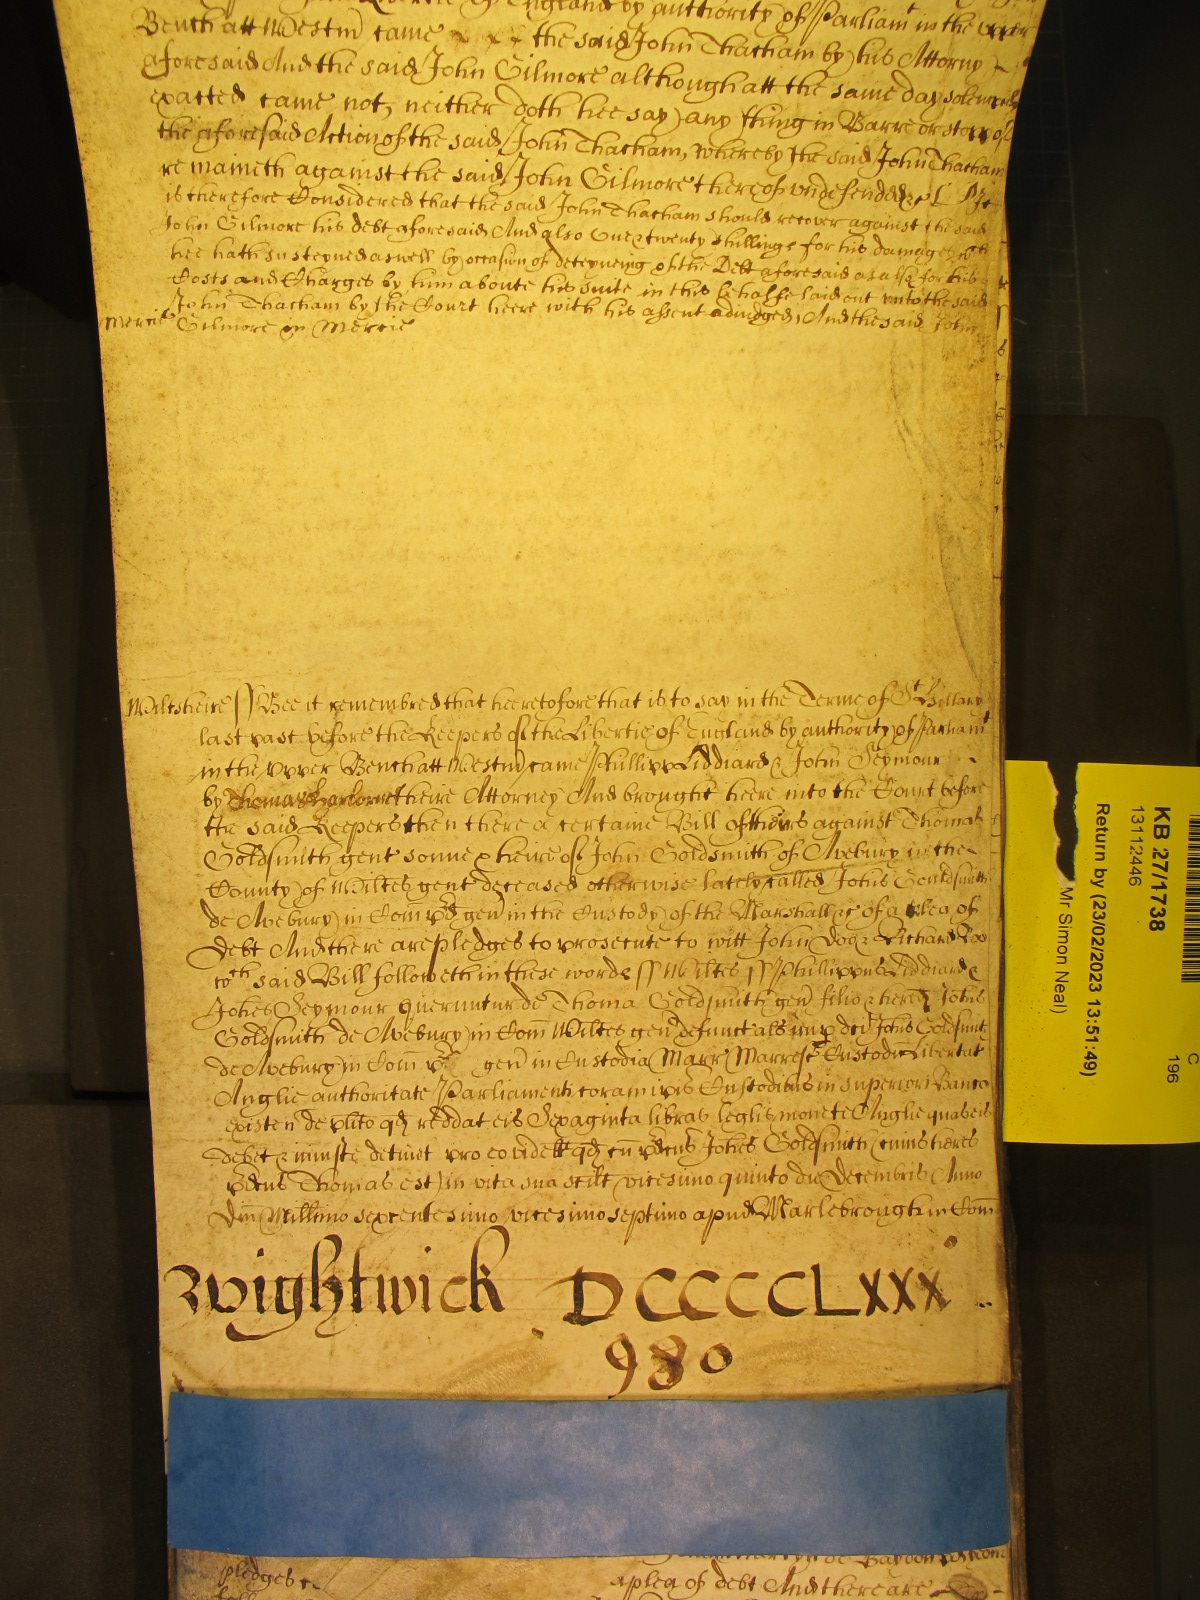 of England by authority of Parliamt in the Upper
Bench att Westm came the said John Thatham by his Attorny
aforesaid And the said John Gilmore although att the same day solemnly
exacted came not, neither doth hee say any thing in Barre or
the aforesaid Action of the said John Thatham, whereby the said John Thatham
remaineth against the said John Gilmore thereof undefended &c
is therefore Considered that the said John Thatham should recover against the said
John Gilmore his debt aforesaid And also twenty shillings for his damages
hee hath susteyned aswell by occasion of deteyneing of the Debt aforesaid as also for his
Costs and Charges by him aboute his suite in this behalfe laid out unto the said
John Thatham by the Court heere with his assent adiudged, And the said John
mercie Gilmore in Mercie
Wiltsheire ss Bee it remembred that heeretofore that is to say in the Terme of St Hillary
last past before the Keepers of the Libertie of England by authority of Parliamt
in the Upper Bench att Westm came Phillipp Liddiard & John Seymour
by Thomas theire Attorney And brought heere into the Court before
the said Keepers then there a certaine Bill of theirs against Thomas
Goldsmith gent sonne & heire of John Goldsmith of Avebury in the
County of Wiltes gent deceased otherwise lately called Johis Gouldsmith
de Avebury in Com pd gen in the Custody of the Marshall &c of a plea of
Debt And there are pledges to prosecute to witt John Doe & Richard Roo
wch said Bill followeth in these words ss Wiltes ss Phillippus Liddiard &
Johes Seymour queruntur de Thoma Goldsmith gen filio & hered Johis
Goldsmith de Avebury in Com Wiltes gen defunct als nup dci Johis Goldsmith
de Avebury in Com pd gen in Custodia Marr Marresc Custodu Libertat
Anglie authoritate Parliamenti coram ipis Custodibus in superiori Banco
existen de plito qd reddat eis Sexaginta libras leglis monete Anglie quas eis
debet & iniuste detinet pro eo videlt qd cu pdcus Johes Goldsmith cuius heres
pdcus Thomas est in vita sua scilt vicesimo quinto die Decembris Anno
Dni Millimo sexcentesimo vicesimo septimo apud Marlebrough in Com
Wightwick DCCCCLXXX
980
pledges
de Baydon
a plea of debt And there are
KB 27/1738
13112446
Return by (23/02/2023 13:51:49)
Mr Simon Neal)
C
196